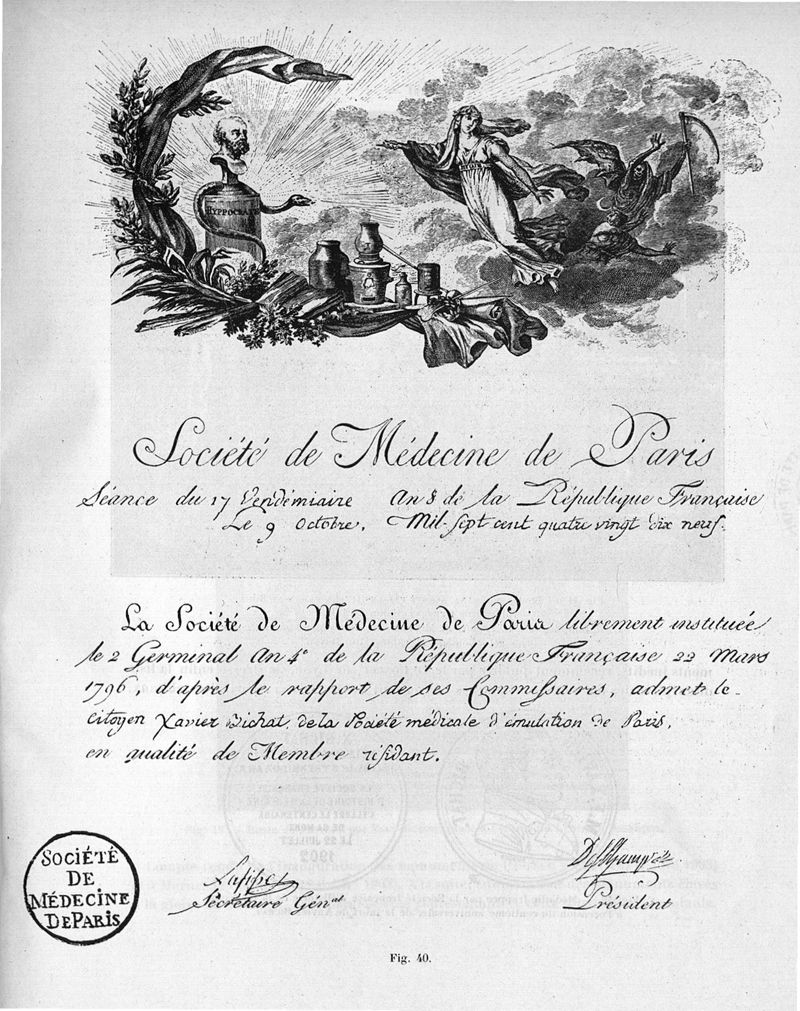 HYPPOCRATE
Société de Médecine de Paris
Séance du 17 Vendemiaire An 8 de la République Française
Le 9 Octobre, Mil-sept cent quatre vingt dix neuf.
La Société de Médecine de Paris librement instituée
le 2 Germinal An 4e de la République Française 22 Mars
1796, d'après le rapport de ses Commissaires, admet le
citoyen Xavier Bichat, de la Société médicale d'émulation de Paris,
en qualité de Membre résidant.
SOCIÉTÉ
DE
MÉDECINE
DE PARIS
Secrétaire Génal
Président
Fig. 40.